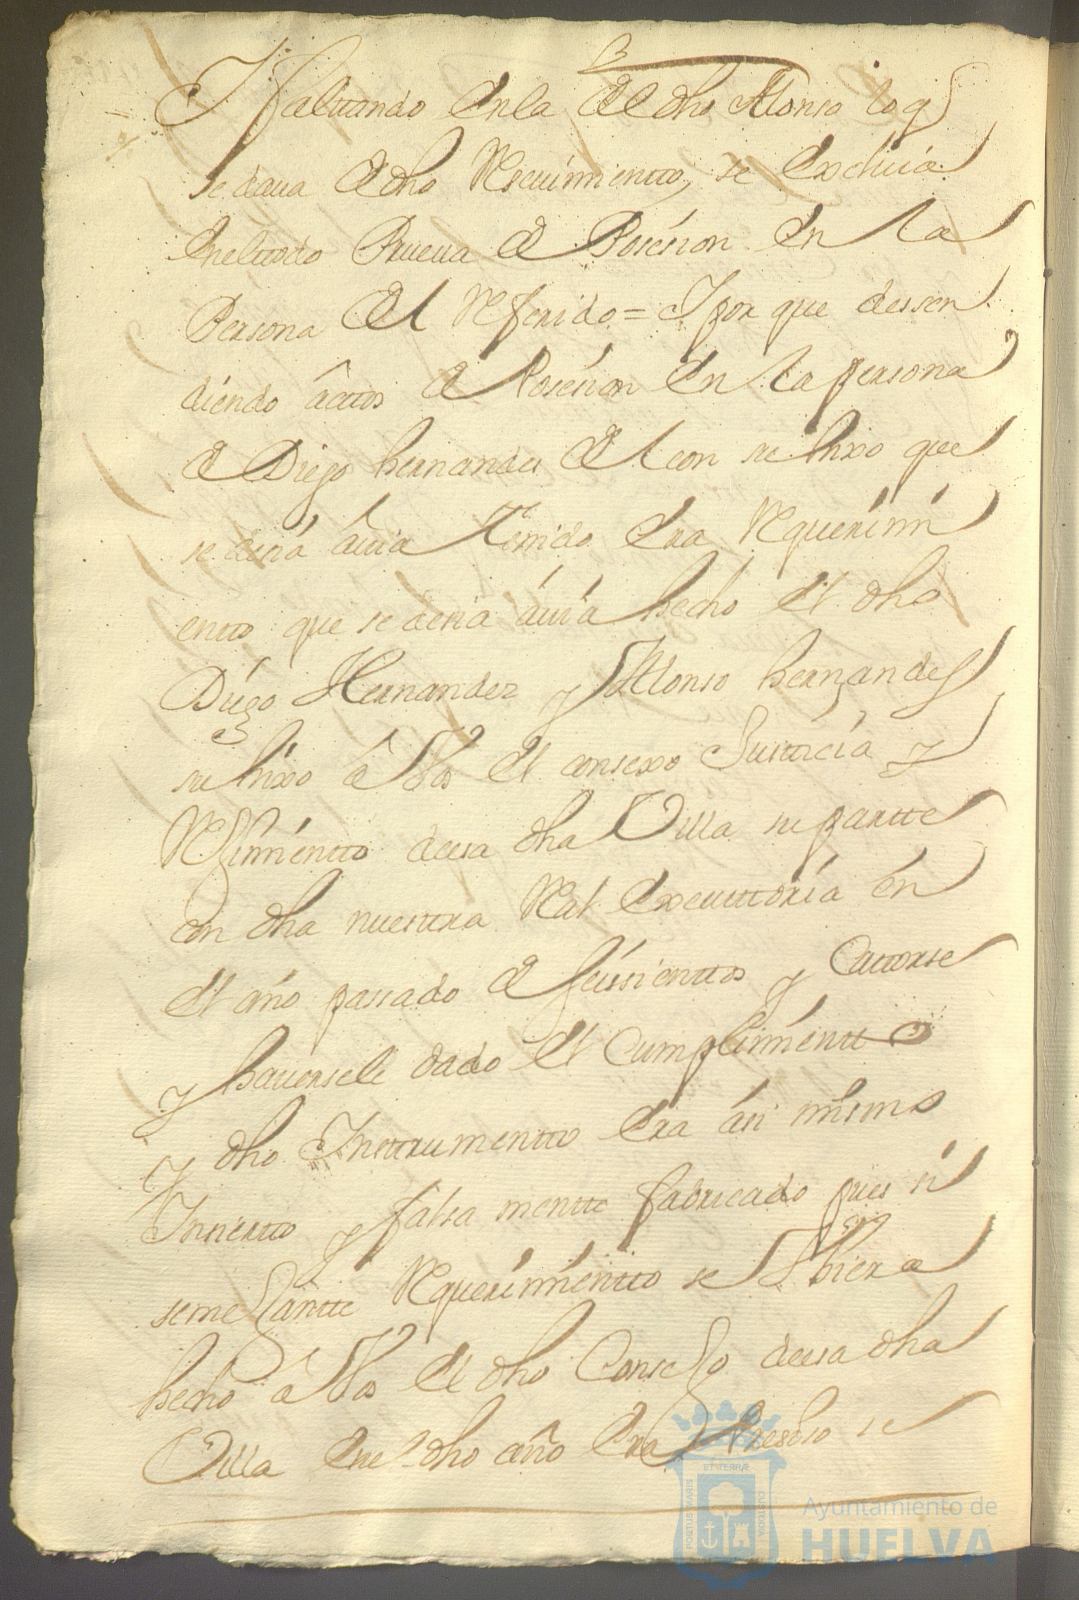 Y faltando En la del dho Alonso lo q
se daua de dho Requimientto, se Excluia
Eneltodo Prueua de Posesion En la
Persona del Referido = Y por que dessen
diendo âcttos de Posesion En la persona
de Diego hernandez de Leon se hixo que
se desia âuia Tenido Era Requerimi
entto que se desia âuia hecho El dho
Diego Hernandez y Alonso hernandes
se hixo â Vos El consexo Justtcia y
Reximientto desa dha Villa su partte
con dha nuesttra Real Executtoria en
El año passado de seissienttos y Cattorse
y hauersele dado El Cumplimientto
y dho Insttrumentto Era âsi mismo
Insiertto y falsa mentte fabricado pues si
semejantte Requerimientto se Vbiera
hecho â Vos El dho Consejo desa dha
Villa Enel dho año Era Presiso se
Ayuntamiento de
HUELVA